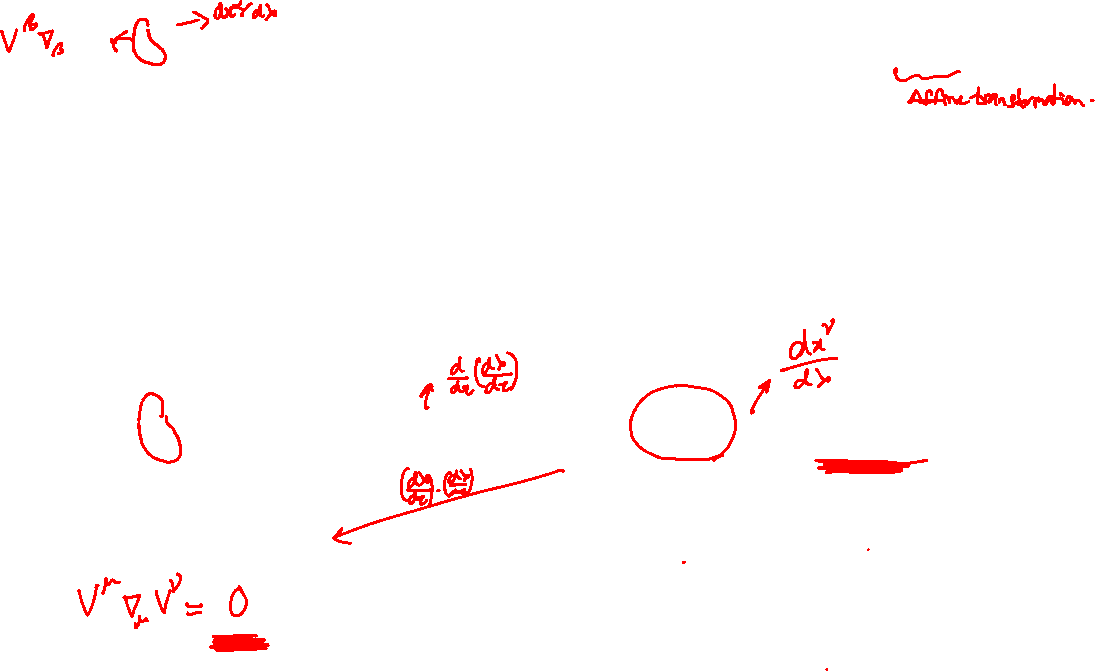 V^β ∇_β → dx^α/dλ
Affine transformation.
dx^ν/dλ
d/dτ (dλ/dτ)
(dλ/dτ) · (dλ/dτ)
V^μ ∇_μ V^ν = 0